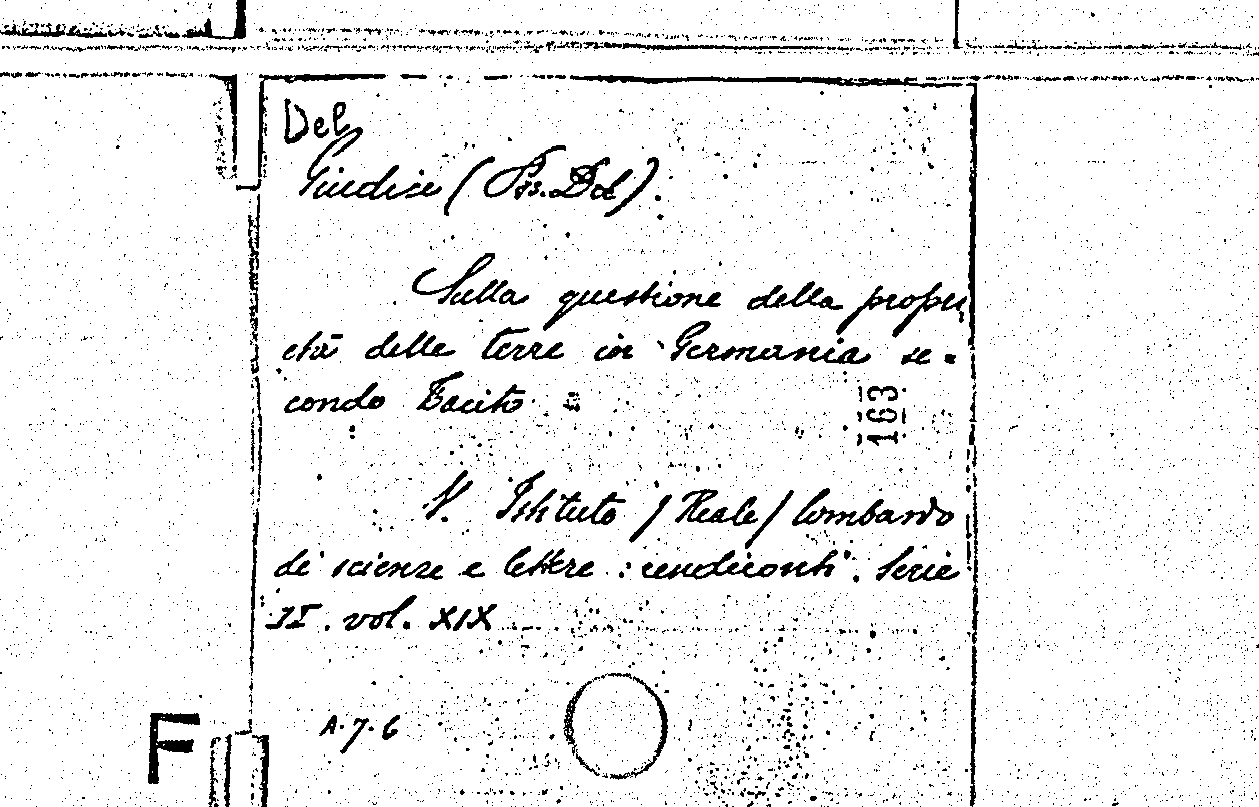 Del
Giudice (Pas. Del).
Sulla questione della propri
età delle terre in Germania se=
condo Tacito
163
V. Istituto / Reale / lombardo
di scienze e lettere : rendiconti. Serie
II. vol. XIX
A.7.6
F